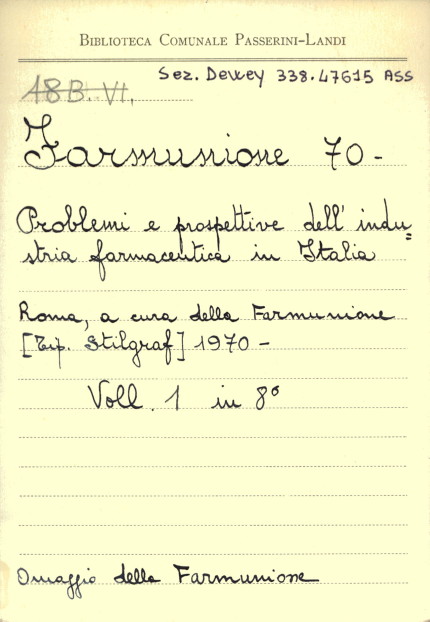 BIBLIOTECA COMUNALE PASSERINI-LANDI
Sez. Dewey 338.47615 ASS
18B. VI,
Farmunione 70-
Problemi e prospettive dell'indu=
stria farmaceutica in Italia
Roma, a cura della Farmunione
[Tip. Stilgraf] 1970-
Voll. 1 in 8°
Omaggio della Farmunione